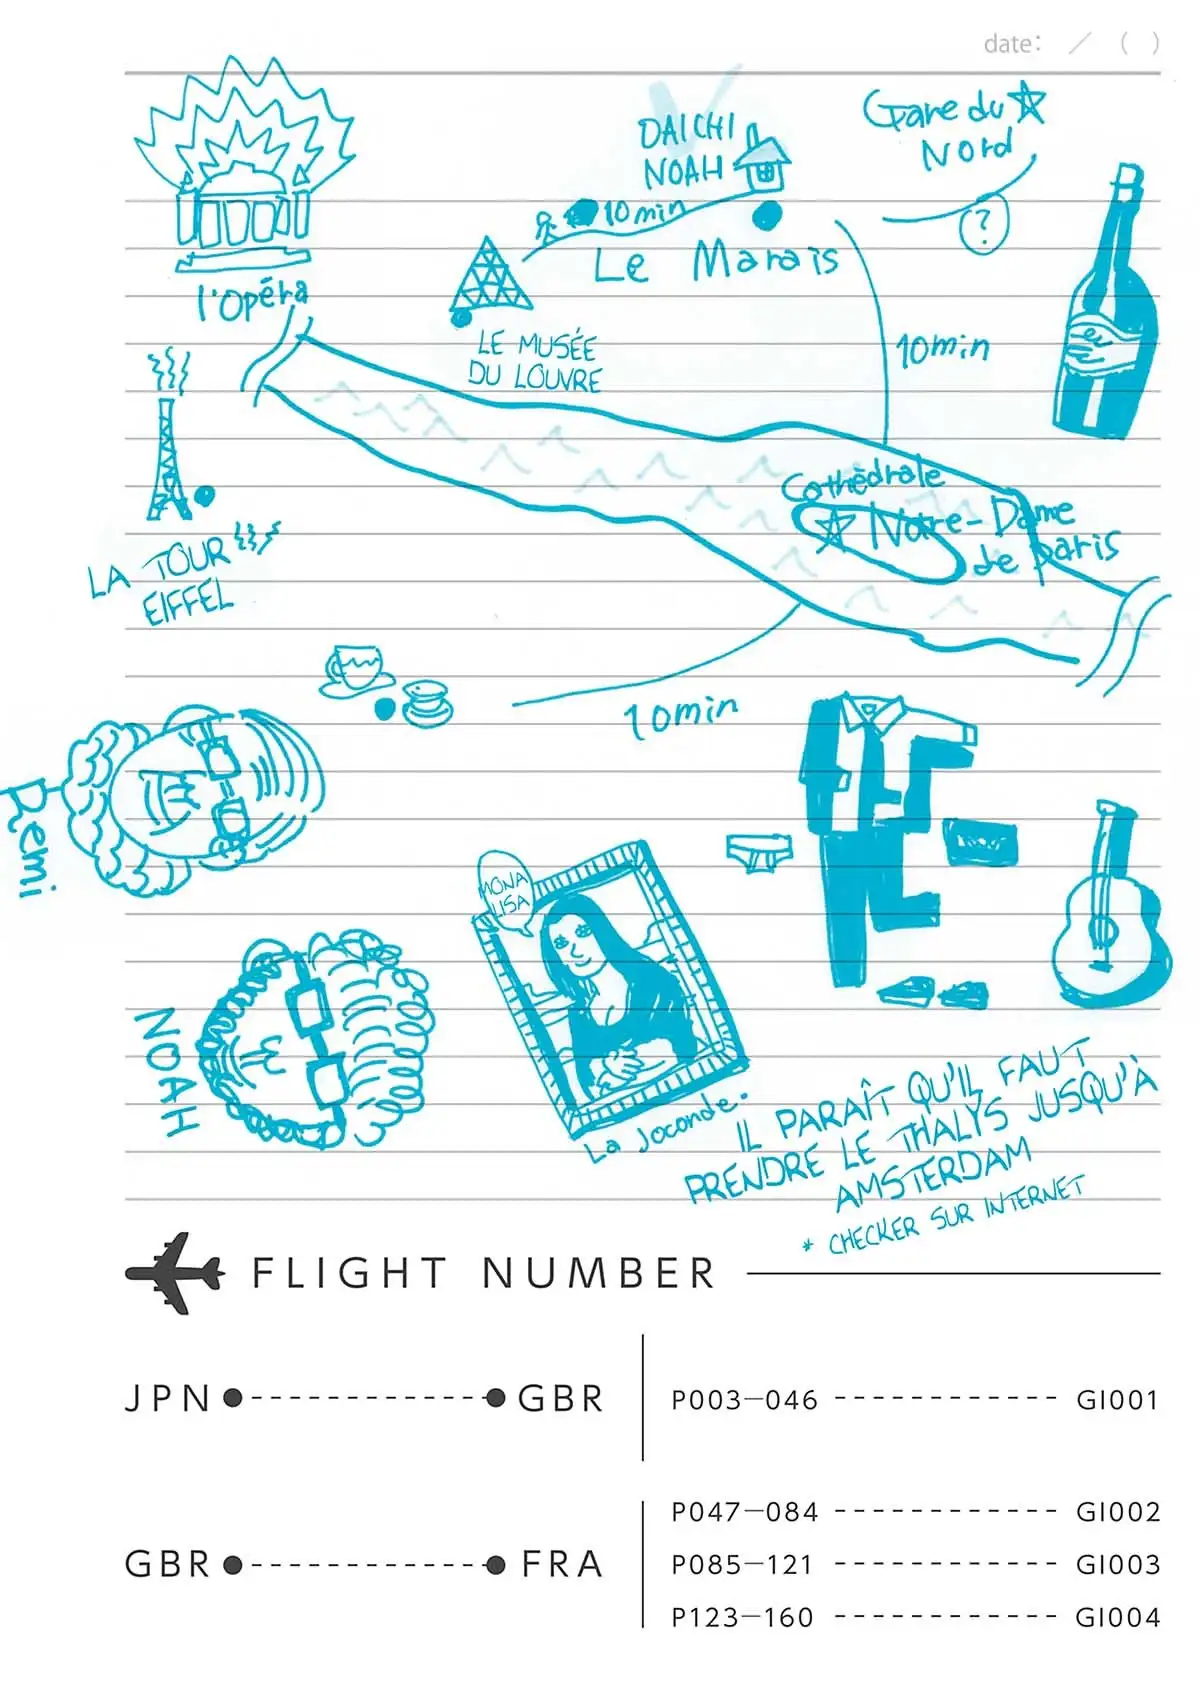 date: / ( )
DAICHI
NOAH
Gare du
Nord
10min
?
Le Marais
l'Opéra
LE MUSÉE
DU LOUVRE
10min
Cathédrale
Notre-Dame
de Paris
LA TOUR
EIFFEL
10min
Remi
MONA
LISA
NOAH
La Joconde.
IL PARAÎT QU'IL FAUT
PRENDRE LE THALYS JUSQU'À
AMSTERDAM
* CHECKER SUR INTERNET
FLIGHT NUMBER
JPN GBR
P003—046 GI001
GBR FRA
P047—084 GI002
P085—121 GI003
P123—160 GI004